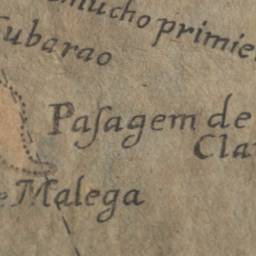 mucho primie
Tubarao
Paſagem de
Cla
e Malega